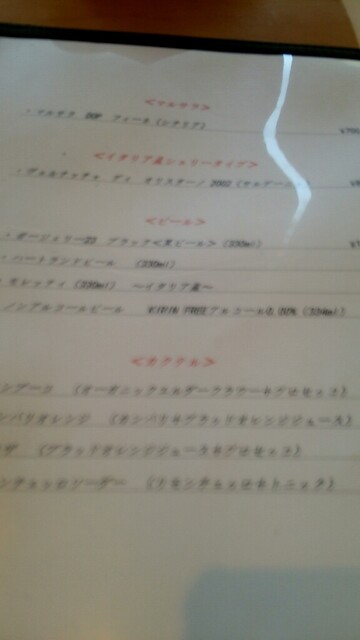 <マルサラ>
・マルサラ DOP フィーネ(シチリア) ¥700
<イタリア産シェリータイプ>
・ヴェルナッチャ ディ オリスターノ 2002 (サルデーニャ)
<ビール>
・ガージェリー23 ブラック<黒ビール> (330ml)
・ハートランドビール (330ml)
・モレッティ (330ml) ～イタリア産～
ノンアルコールビール KIRIN FREE アルコール0.00% (334ml)
<カクテル>
(オーガニックエルダーフラワー+プロセッコ)
ンパリオレンジ (カンパリ+ブラッドオレンジジュース)
(ブラッドオレンジジュース+プロセッコ)
ンチェッロソーダー (リモンチェッロ+トニック)